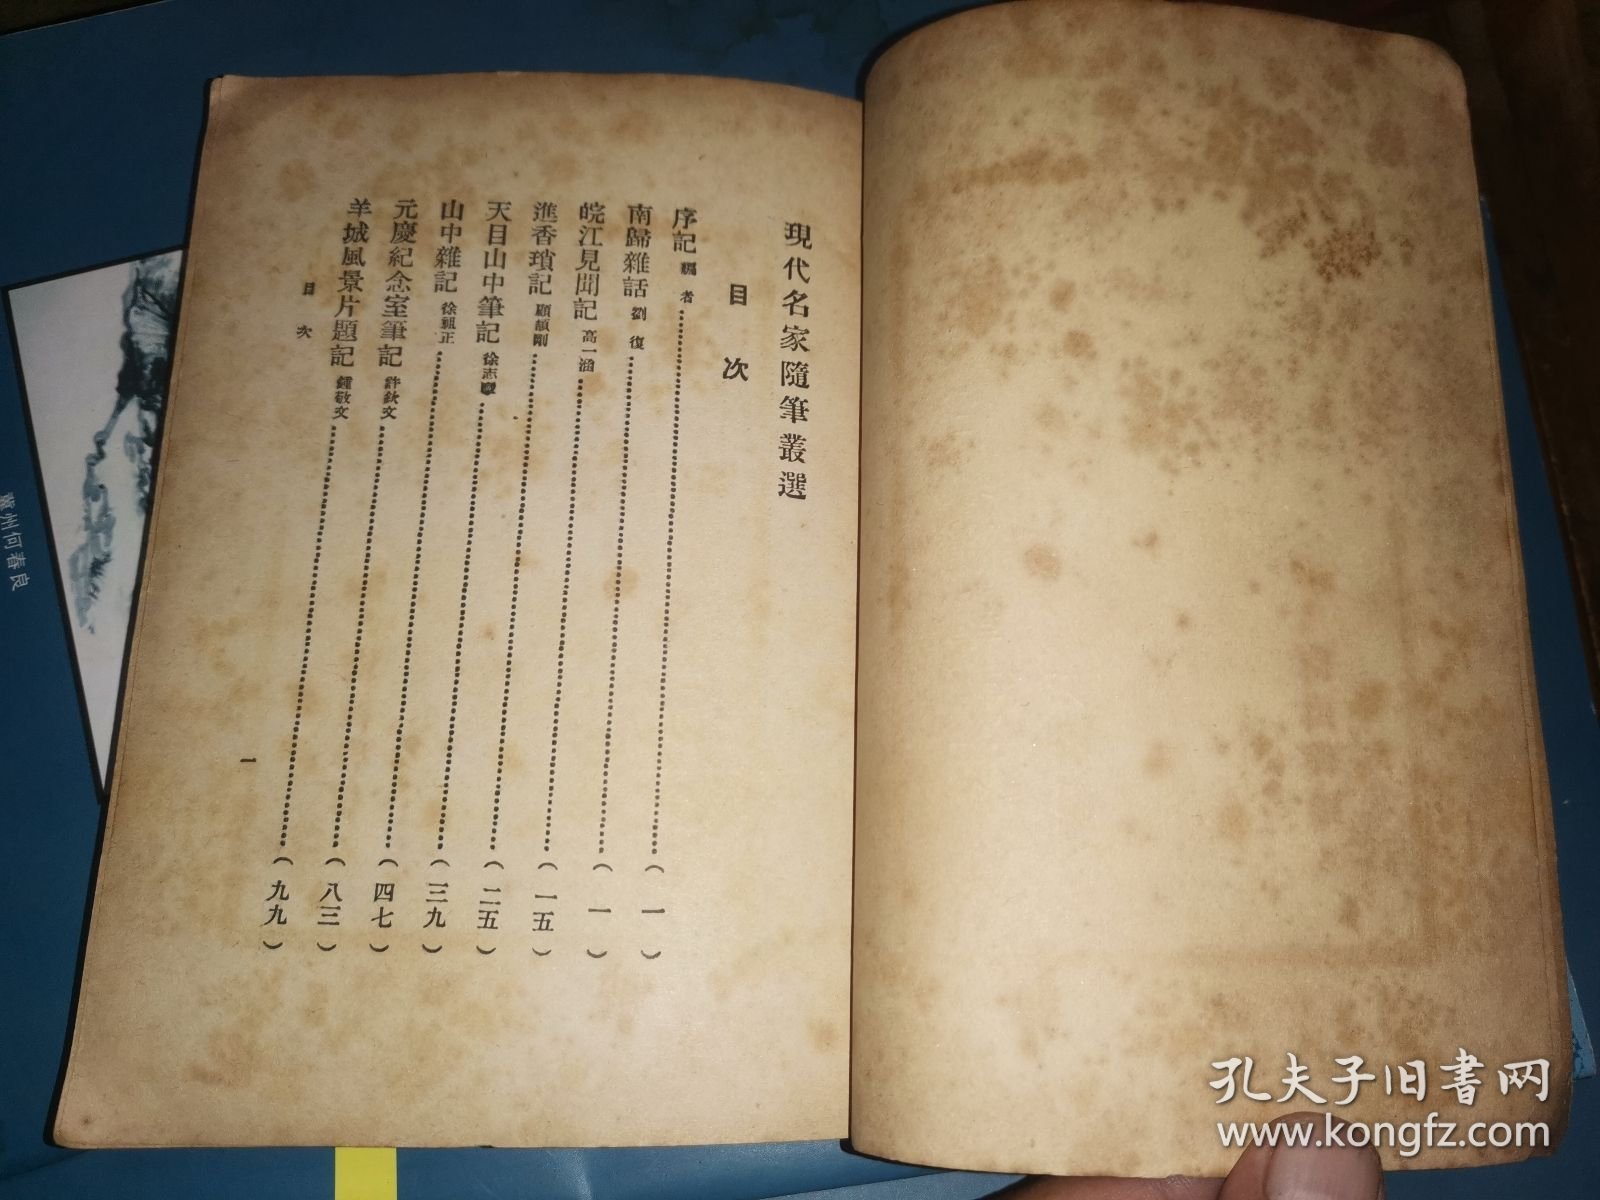 現代名家隨筆叢選
目次
序記 編者（一）
南歸雜話 劉復（一）
皖江見聞記 高一涵（一五）
進香瑣記 顧頡剛（二五）
天目山中筆記 徐志摩（三九）
山中雜記 徐祖正（四七）
元慶紀念室筆記 許欽文（八三）
羊城風景片題記 鍾敬文（九九）
目次
一
州何春良
孔夫子旧书网
www.kongfz.com